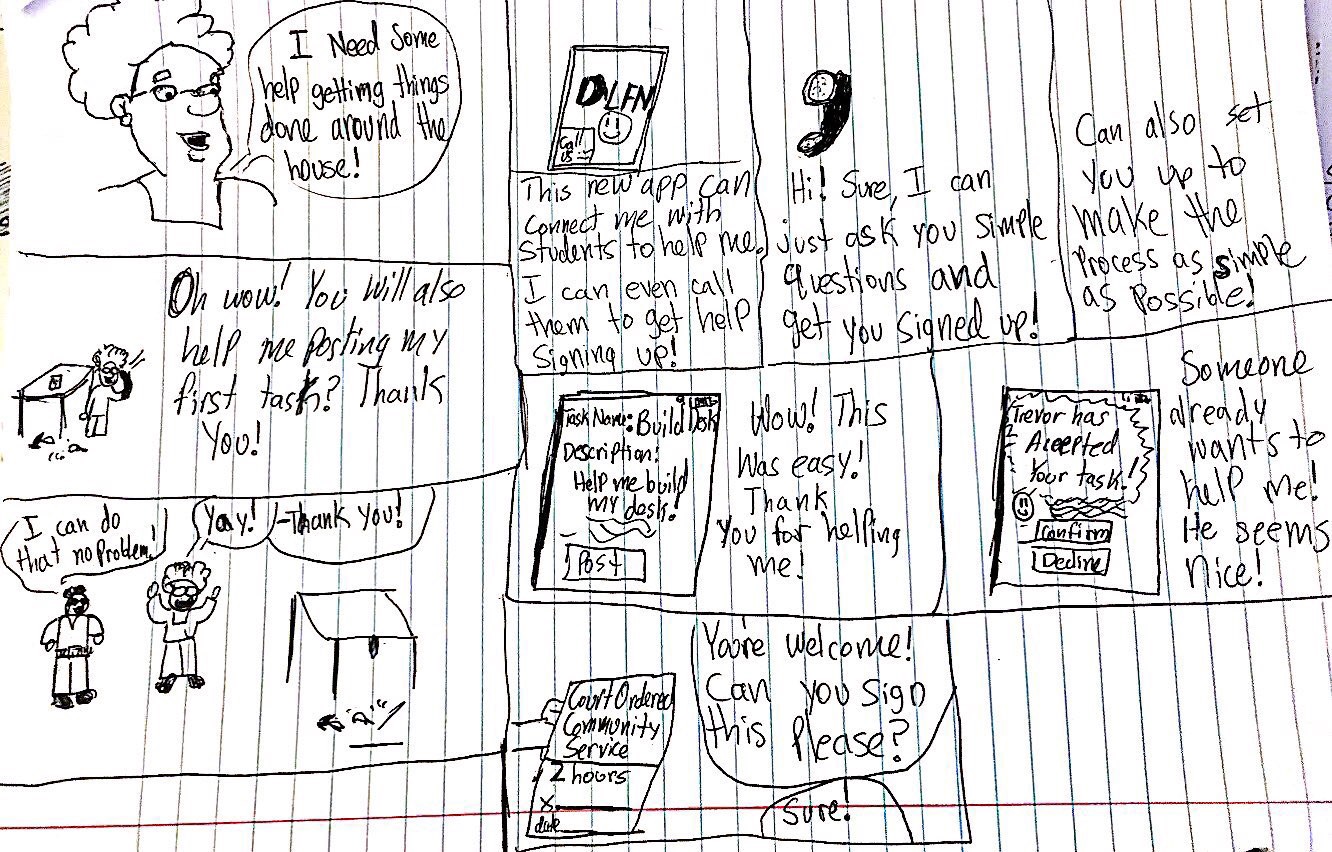 I Need Some
help getting things
done around the
house!
DLFN
Call
US
This new app can
connect me with
students to help me.
I can even call
them to get help
signing up!
Hi! Sure, I can
just ask you simple
questions and
get you signed up!
Can also set
you up to
make the
process as simple
as possible!
Oh wow! You will also
help me posting my
first task? Thank
You!
Task Name: Build Desk
Description:
Help me build
my desk!
Post
Wow! This
was easy!
Thank
You for helping
me!
Trevor has
Accepted
Your task!
Confirm
Decline
Someone
already
wants to
help me!
He seems
nice!
I can do
that no problem!
Yay!
-Thank you!
Court Ordered
Community
Service
2 hours
x
date
You're welcome!
Can you sign
this please?
Sure!